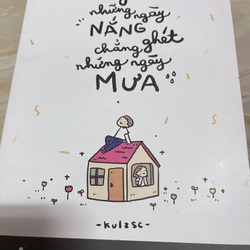 những ngày
NẮNG ghét
chẳng
những ngày
MƯA
-kulzsc-